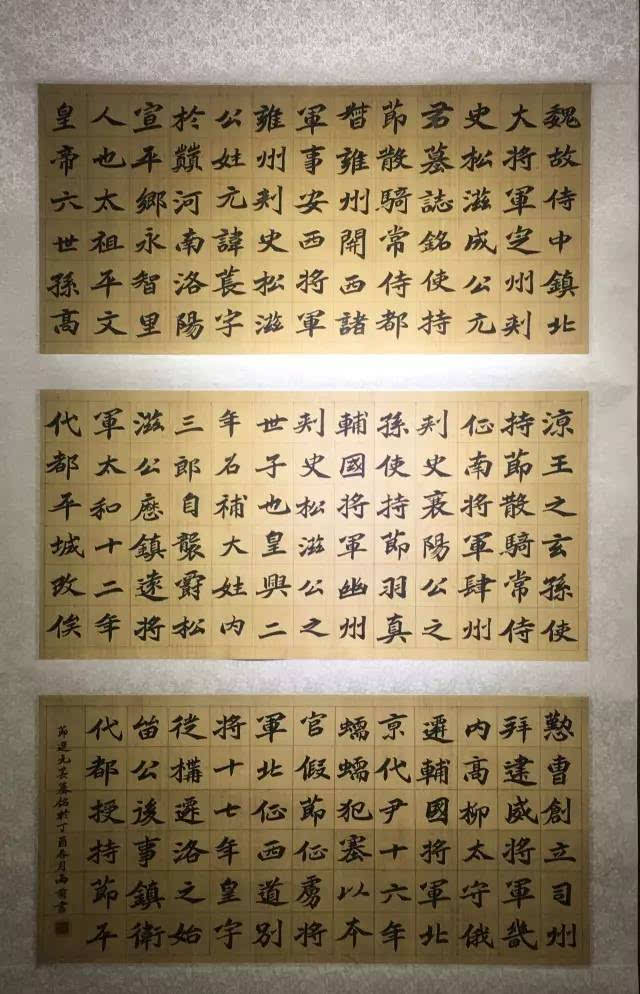 魏故侍中鎮北
大將軍定州刺
史松滋成公元
君墓誌銘使持
節散騎常侍都
督雍州開西諸
軍事安西將軍
雍州刺史松滋
公姓元諱萇字
於巔河南洛陽
宣平鄉永智里
人也太祖平文
皇帝六世孫高
涼王之玄孫使
持節散騎常侍
征南將軍肆州
刺史襄陽公之
孫使持節羽真
輔國將軍幽州
刺史松滋公之
世子也皇興二
年召補大姓內
三郎自襲爵松
滋公歷鎮遠將
軍太和十二年
代都平城改俟
懃曹創立司州
拜建威將軍畿
內高柳太守俄
遷輔國將軍北
京代尹十六年
蠕蠕犯塞以本
官假節征虜將
軍北征西道別
將十七年皇宇
徙構遷洛之始
留公後事鎮衛
代都授持節平
節選元萇墓銘於丁酉月雨前書